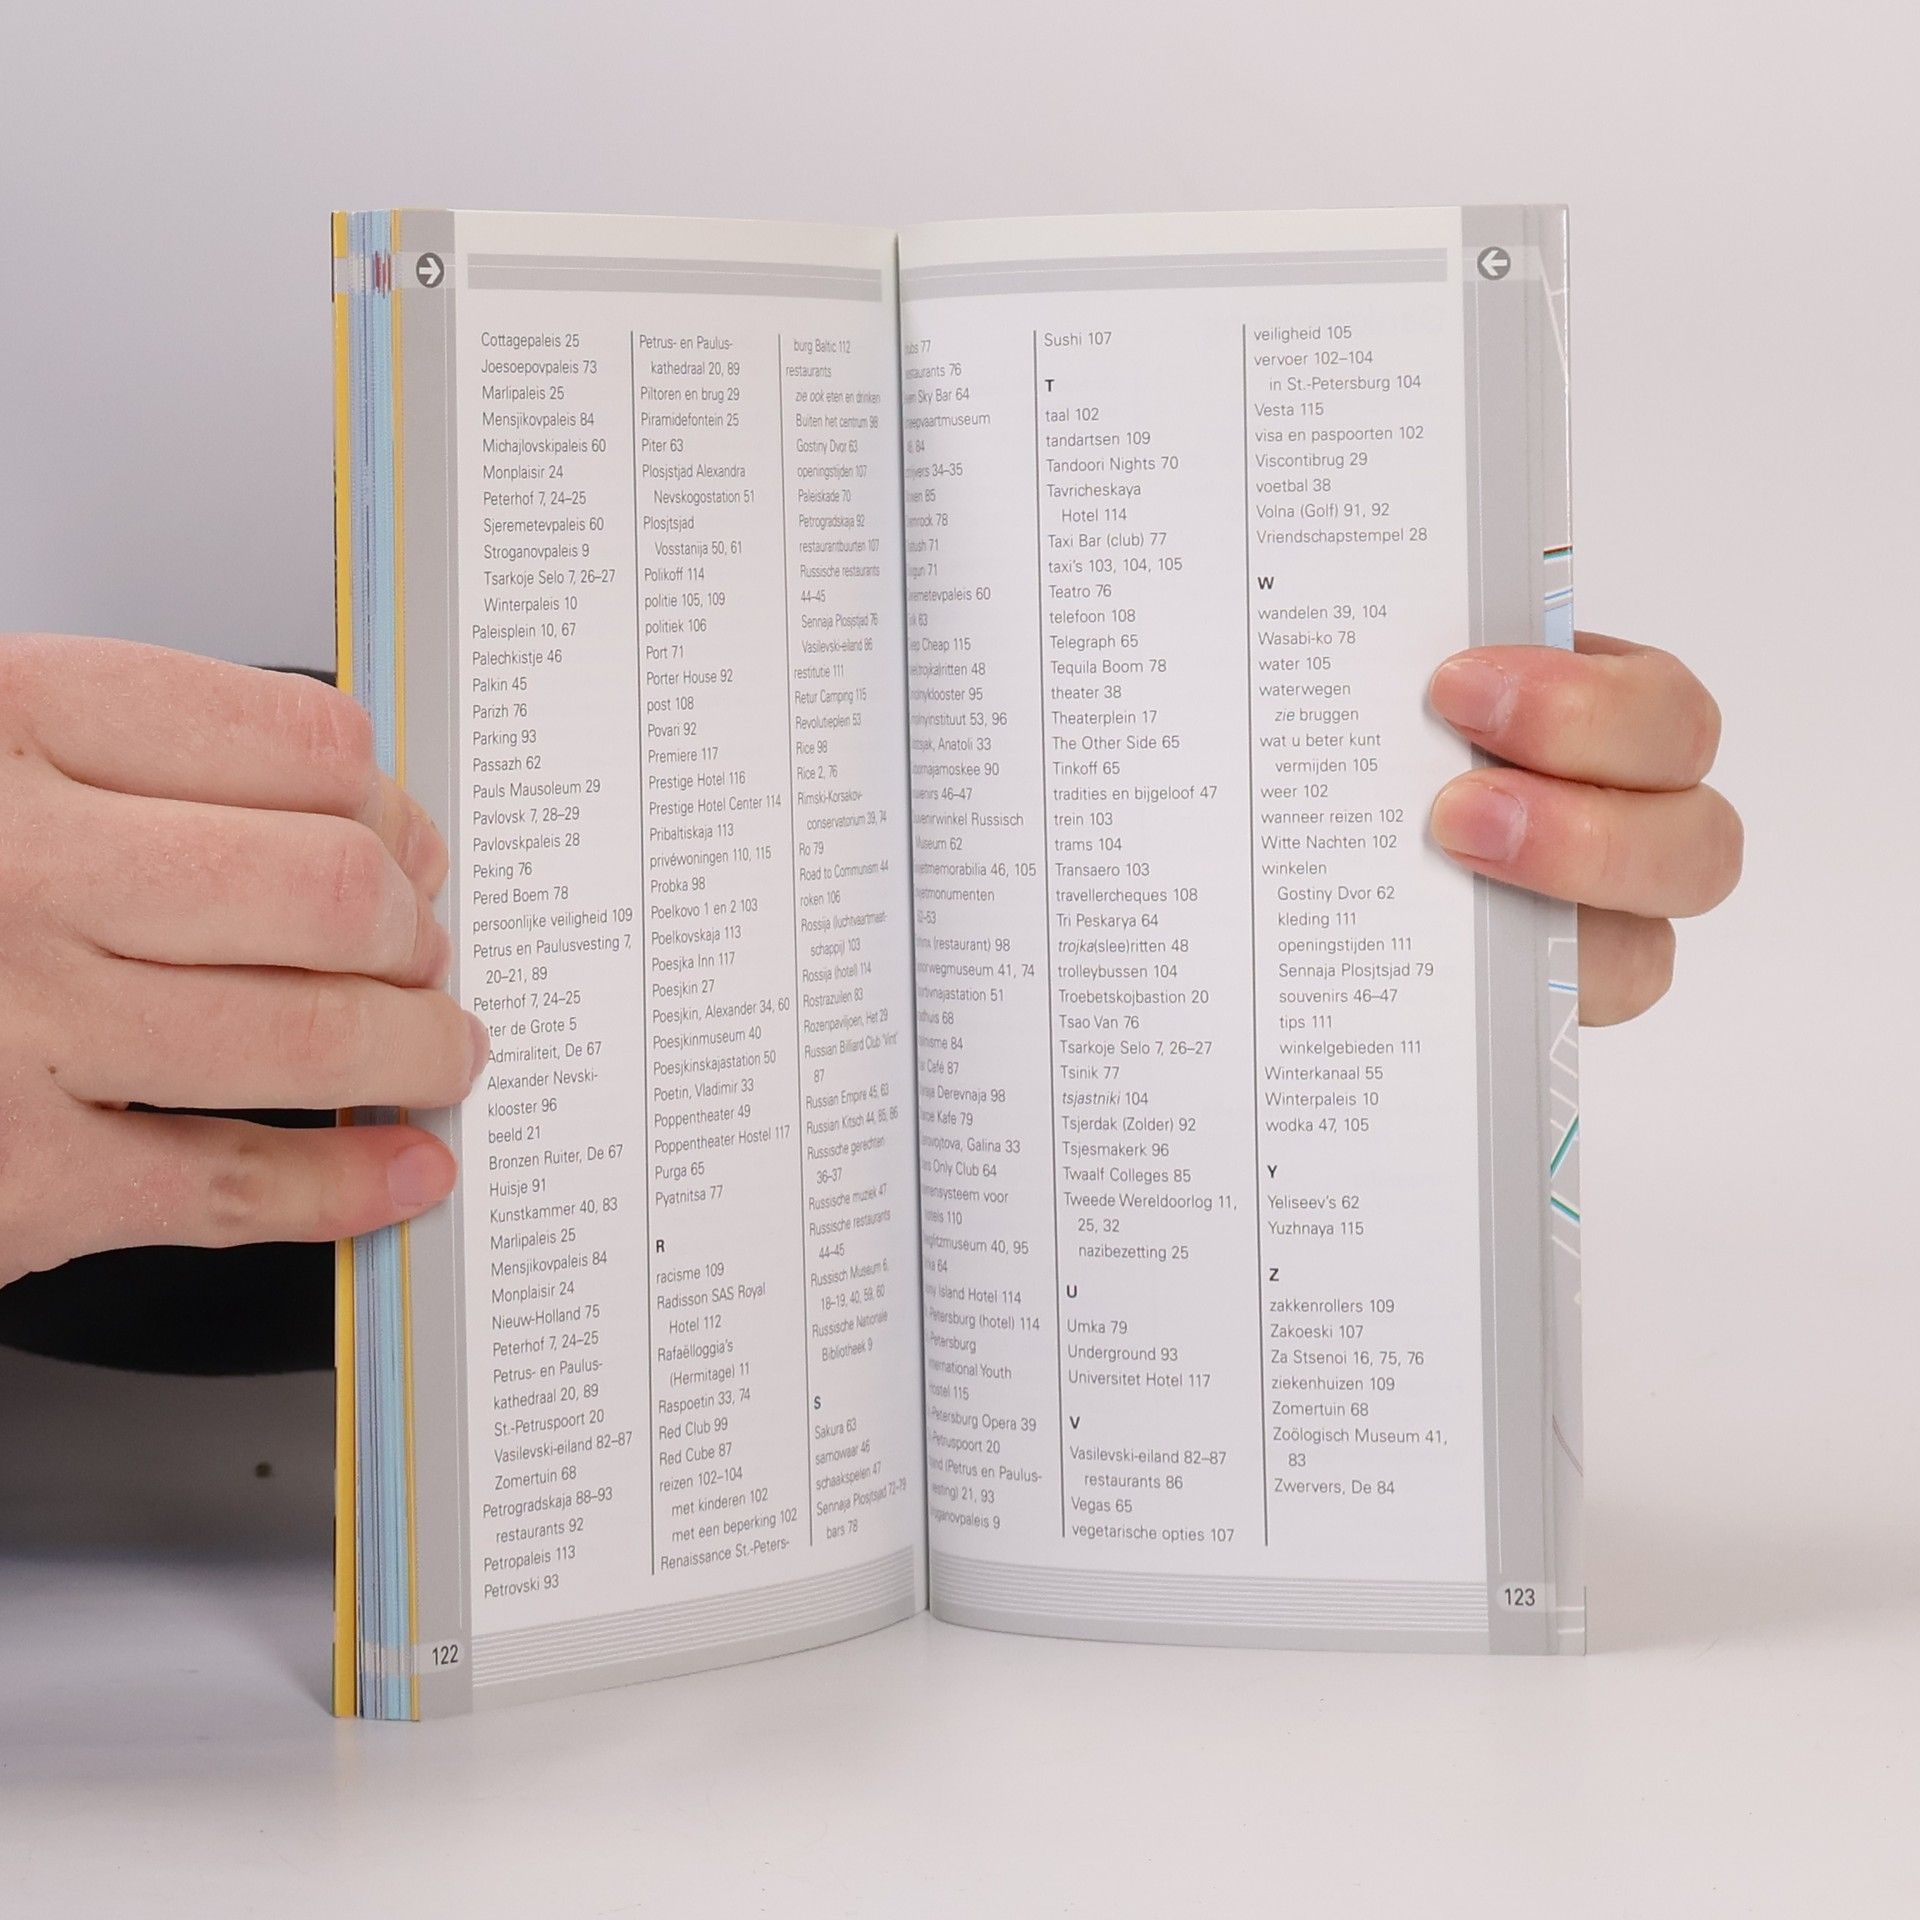 Cottagepaleis 25
Joesoepovpaleis 73
Marlipaleis 25
Mensjikovpaleis 84
Michajlovskipaleis 60
Monplaisir 24
Peterhof 7, 24–25
Sjeremetevpaleis 60
Stroganovpaleis 9
Tsarkoje Selo 7, 26–27
Winterpaleis 10
Paleisplein 10, 67
Palechkistje 46
Palkin 45
Parizh 76
Parking 93
Passazh 62
Pauls Mausoleum 29
Pavlovsk 7, 28–29
Pavlovskpaleis 28
Peking 76
Pered Boem 78
persoonlijke veiligheid 109
Petrus en Paulusvesting 7,
20–21, 89
Peterhof 7, 24–25
de Grote 5
Admiraliteit, De 67
Alexander Nevski-
klooster 96
beeld 21
Bronzen Ruiter, De 67
Huisje 91
Kunstkammer 40, 83
Marlipaleis 25
Mensjikovpaleis 84
Monplaisir 24
Nieuw-Holland 75
Peterhof 7, 24–25
Petrus- en Paulus-
kathedraal 20, 89
St.-Petruspoort 20
Vasilevski-eiland 82–87
Zomertuin 68
Petrogradskaja 88–93
restaurants 92
Petropaleis 113
Petrovski 93
Petrus- en Paulus-
kathedraal 20, 89
Piltoren en brug 29
Piramidefontein 25
Piter 63
Plosjstjad Alexandra
Nevskogostation 51
Plosjtsjad
Vosstanija 50, 61
Polikoff 114
politie 105, 109
politiek 106
Port 71
Porter House 92
post 108
Povari 92
Premiere 117
Prestige Hotel 116
Prestige Hotel Center 114
Pribaltiskaja 113
privéwoningen 110, 115
Probka 98
Poelkovo 1 en 2 103
Poelkovskaja 113
Poesjka Inn 117
Poesjkin 27
Poesjkin, Alexander 34, 60
Poesjkinmuseum 40
Poesjkinskajastation 50
Poetin, Vladimir 33
Poppentheater 49
Poppentheater Hostel 117
Purga 65
Pyatnitsa 77
R
racisme 109
Radisson SAS Royal
Hotel 112
Rafaëlloggia's
(Hermitage) 11
Raspoetin 33, 74
Red Club 99
Red Cube 87
reizen 102–104
met kinderen 102
met een beperking 102
Renaissance St.-Peters-
burg Baltic 112
restaurants
zie ook eten en drinken
Buiten het centrum 98
Gostiny Dvor 63
openingstijden 107
Paleiskade 70
Petrogradskaja 92
restaurantbuurten 107
Russische restaurants
44–45
Sennaja Plosjstjad 76
Vasilevski-eiland 86
restitutie 111
Retur Camping 115
Revolutieplein 53
Rice 98
Rice 2, 76
Rimski-Korsakov-
conservatorium 39, 74
Ro 79
Road to Communism 44
roken 106
Rossija (luchtvaartmaat-
schappij) 103
Rossija (hotel) 114
Rostrazuilen 83
Rozenpaviljoen, Het 29
Russian Billiard Club 'Vint'
87
Russian Empire 45, 63
Russian Kitsch 44, 85, 86
Russische gerechten
36–37
Russische muziek 47
Russische restaurants
44–45
Russisch Museum 6,
18–19, 40, 59, 60
Russische Nationale
Bibliotheek 9
S
Sakura 63
samowaar 46
schaakspelen 47
Sennaja Plosjtsjad 72–79
bars 78
122
77
76
Sky Bar 64
84
34–35
85
78
71
71
60
63
Cheap 115
48
95
53, 96
Anatoli 33
90
46–47
Russisch
62
46, 105
(restaurant) 98
41, 74
51
68
84
Café 87
Derevnaja 98
Kafe 79
Galina 33
Only Club 64
voor
110
40, 95
64
Island Hotel 114
Petersburg (hotel) 114
Petersburg
Youth
115
Petersburg Opera 39
20
(Petrus en Paulus-
21, 93
9
Sushi 107
T
taal 102
tandartsen 109
Tandoori Nights 70
Tavricheskaya
Hotel 114
Taxi Bar (club) 77
taxi's 103, 104, 105
Teatro 76
telefoon 108
Telegraph 65
Tequila Boom 78
theater 38
Theaterplein 17
The Other Side 65
Tinkoff 65
tradities en bijgeloof 47
trein 103
trams 104
Transaero 103
travellercheques 108
Tri Peskarya 64
trojka(slee)ritten 48
trolleybussen 104
Troebetskojbastion 20
Tsao Van 76
Tsarkoje Selo 7, 26–27
Tsinik 77
tsjastniki 104
Tsjerdak (Zolder) 92
Tsjesmakerk 96
Twaalf Colleges 85
Tweede Wereldoorlog 11,
25, 32
nazibezetting 25
U
Umka 79
Underground 93
Universitet Hotel 117
V
Vasilevski-eiland 82–87
restaurants 86
Vegas 65
vegetarische opties 107
veiligheid 105
vervoer 102–104
in St.-Petersburg 104
Vesta 115
visa en paspoorten 102
Viscontibrug 29
voetbal 38
Volna (Golf) 91, 92
Vriendschapstempel 28
W
wandelen 39, 104
Wasabi-ko 78
water 105
waterwegen
zie bruggen
wat u beter kunt
vermijden 105
weer 102
wanneer reizen 102
Witte Nachten 102
winkelen
Gostiny Dvor 62
kleding 111
openingstijden 111
Sennaja Plosjtsjad 79
souvenirs 46–47
tips 111
winkelgebieden 111
Winterkanaal 55
Winterpaleis 10
wodka 47, 105
Y
Yeliseev's 62
Yuzhnaya 115
Z
zakkenrollers 109
Zakoeski 107
Za Stsenoi 16, 75, 76
ziekenhuizen 109
Zomertuin 68
Zoölogisch Museum 41,
83
Zwervers, De 84
123